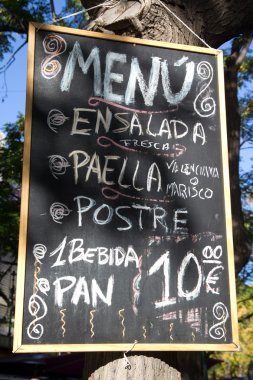 MENÚ
ENSALADA
FRESCA
PAELLA VALENCIANA
O
MARISCO
POSTRE
1 BEBIDA
PAN
10.00 €